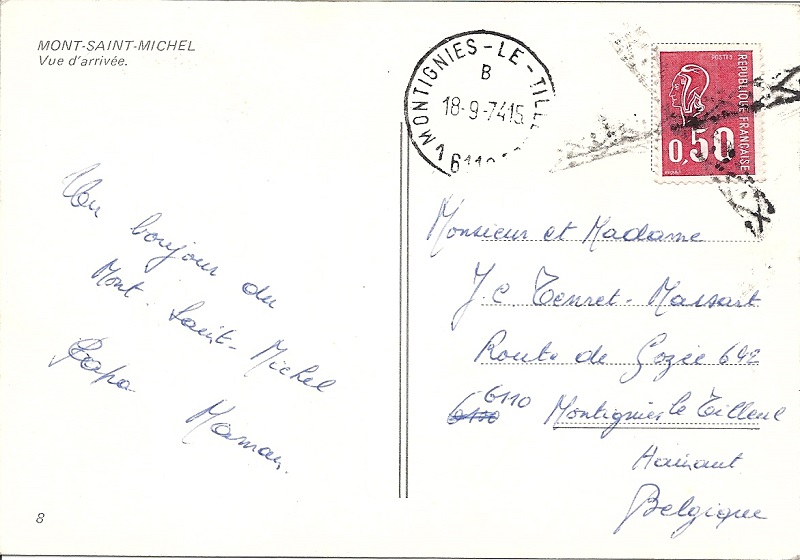 MONT-SAINT-MICHEL
Vue d'arrivée.
MONTIGNIES-LE-TILL
B
18-9-74 15
1 6110
POSTES
REPUBLIQUE FRANÇAISE
0,50
Un bonjour du
Mont-Saint-Michel
Papa Maman.
Monsieur et Madame
J.C Tenret-Massart
Route de Gozée 642
6110 Montignies le Tilleul
Hainaut
Belgique
8